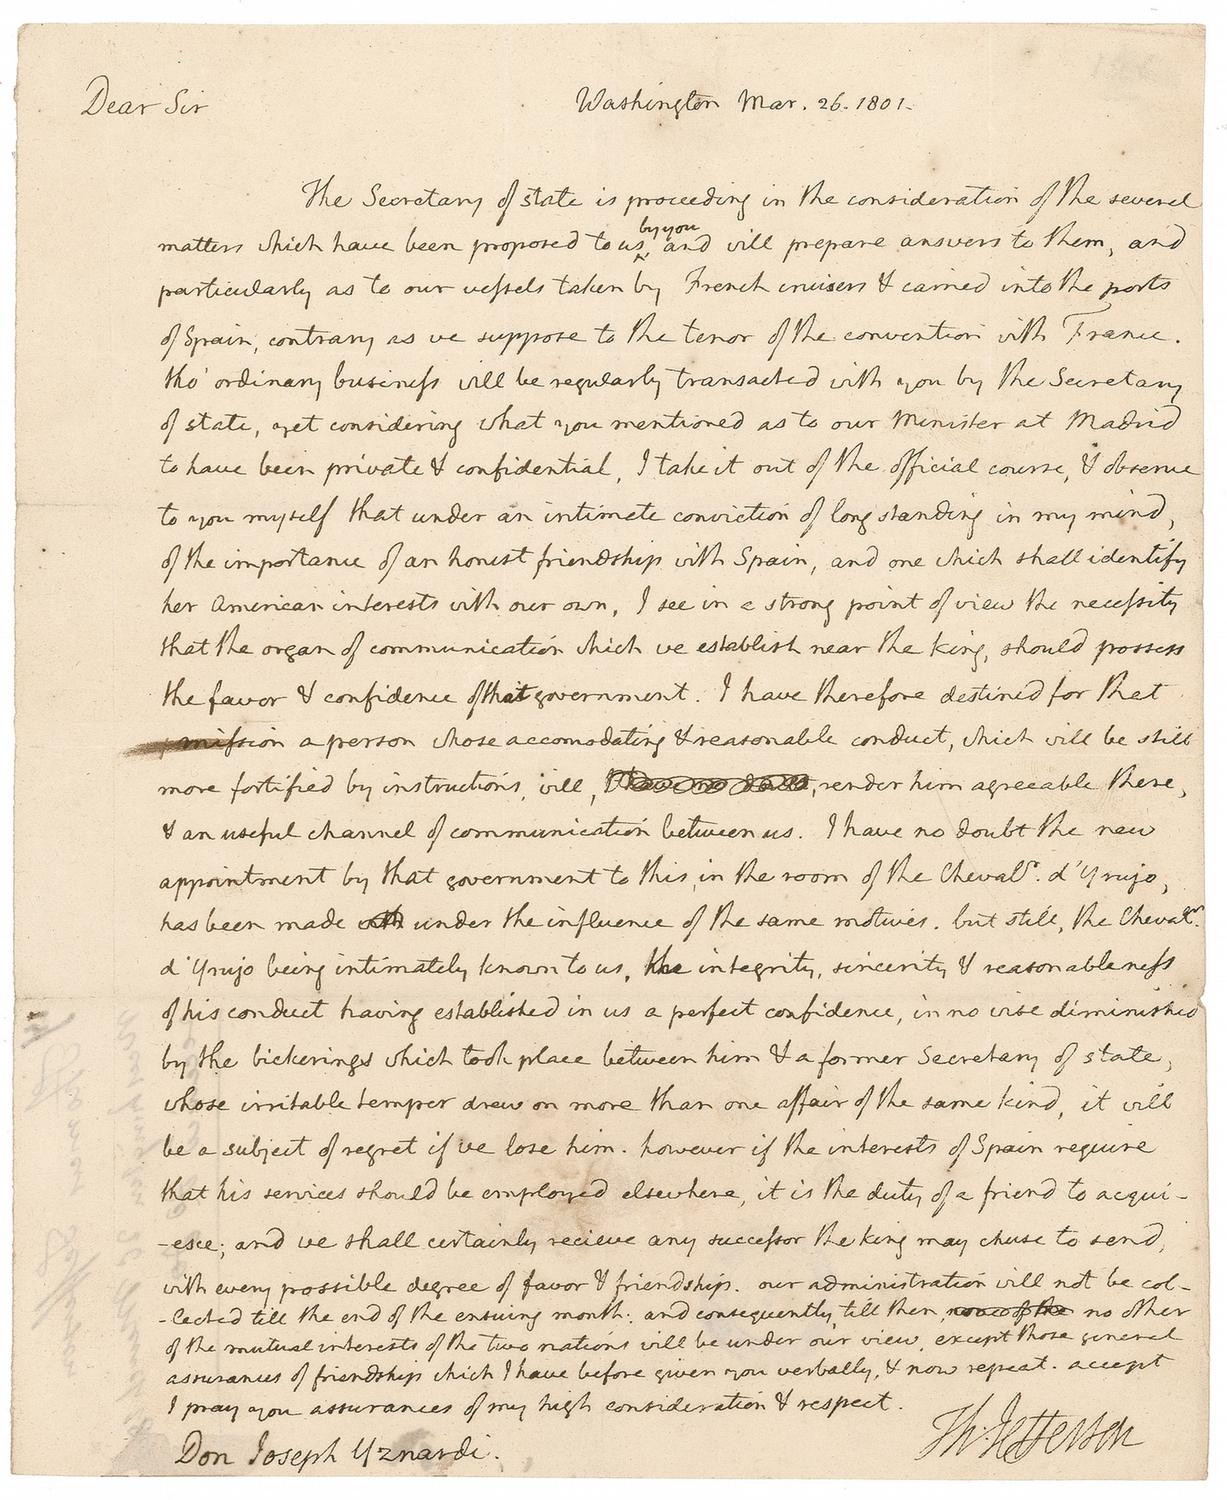 Dear Sir
Washington Mar. 26. 1801.
The Secretary of state is proceeding in the consideration of the several
by you
matters which have been proposed to us, and will prepare answers to them, and
particularly as to our vessels taken by French cruisers & carried into the ports
of Spain, contrary as we suppose to the tenor of the convention with France.
tho' ordinary business will be regularly transacted with you by the Secretary
of state, yet considering what you mentioned as to our Minister at Madrid
to have been private & confidential, I take it out of the official course, & observe
to you myself that under an intimate conviction of long standing in my mind,
of the importance of an honest friendship with Spain, and one which shall identify
her American interests with our own, I see in a strong point of view the necessity
that the organ of communication which we establish near the King, should possess
the favor & confidence of that government. I have therefore destined for that
mission a person whose accomodating & reasonable conduct, which will be still
more fortified by instructions, will, I have no doubt, render him agreeable there,
& an useful channel of communication between us. I have no doubt the new
appointment by that government to this, in the room of the Chevalr. d'Yrujo,
has been made under the influence of the same motives. but still, the Chevalr.
d'Yrujo being intimately known to us, the integrity, sincerity & reasonableness
of his conduct having established in us a perfect confidence, in no wise diminished
by the bickerings which took place between him & a former Secretary of state,
whose irritable temper drew on more than one affair of the same kind, it will
be a subject of regret if we lose him. however if the interests of Spain require
that his services should be employed elsewhere, it is the duty of a friend to acqui-
-esce; and we shall certainly recieve any successor the king may chuse to send,
with every possible degree of favor & friendship. our administration will not be col-
-lected till the end of the ensuing month. and consequently, till then, none of the no other
of the mutual interests of the two nations will be under our view, except those general
assurances of friendship which I have before given you verbally, & now repeat. accept
I pray you assurances of my high consideration & respect.
Th: Jefferson
Don Joseph Yznardi.